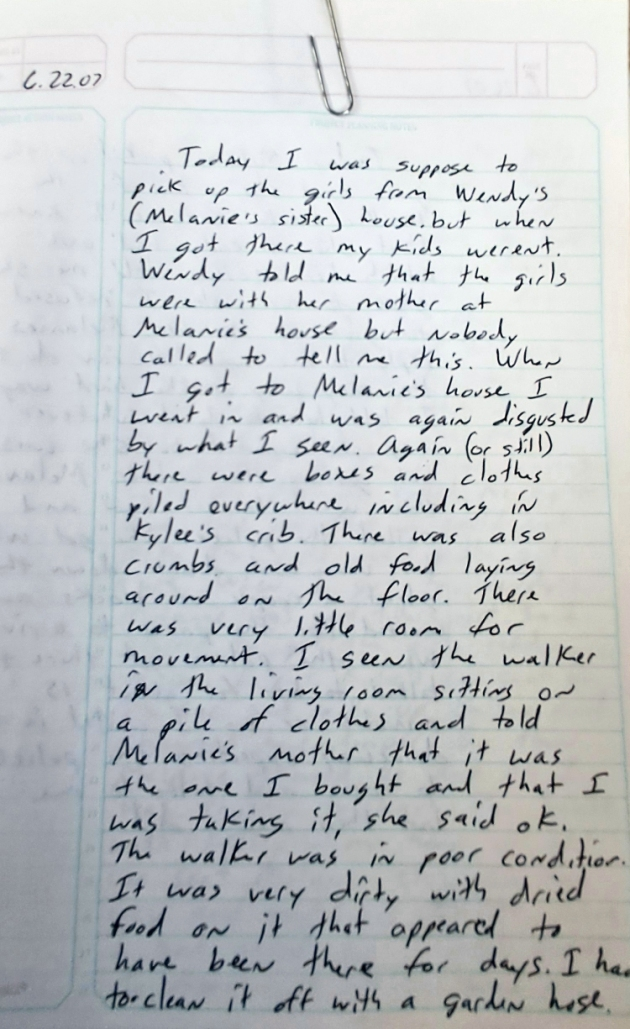 6.22.07
Today I was suppose to
pick up the girls from Wendy's
(Melanie's sister) house. but when
I got there my kids werent.
Wendy told me that the girls
were with her mother at
Melanie's house but nobody
called to tell me this. When
I got to Melanie's house I
went in and was again disgusted
by what I seen. Again (or still)
there were boxes and clothes
piled everywhere including in
Kylee's crib. There was also
crumbs and old food laying
around on the floor. There
was very little room for
movement. I seen the walker
in the living room sitting on
a pile of clothes and told
Melanie's mother that it was
the one I bought and that I
was taking it, she said ok.
The walker was in poor condition.
It was very dirty with dried
food on it that appeared to
have been there for days. I had
to clean it off with a garden hose.